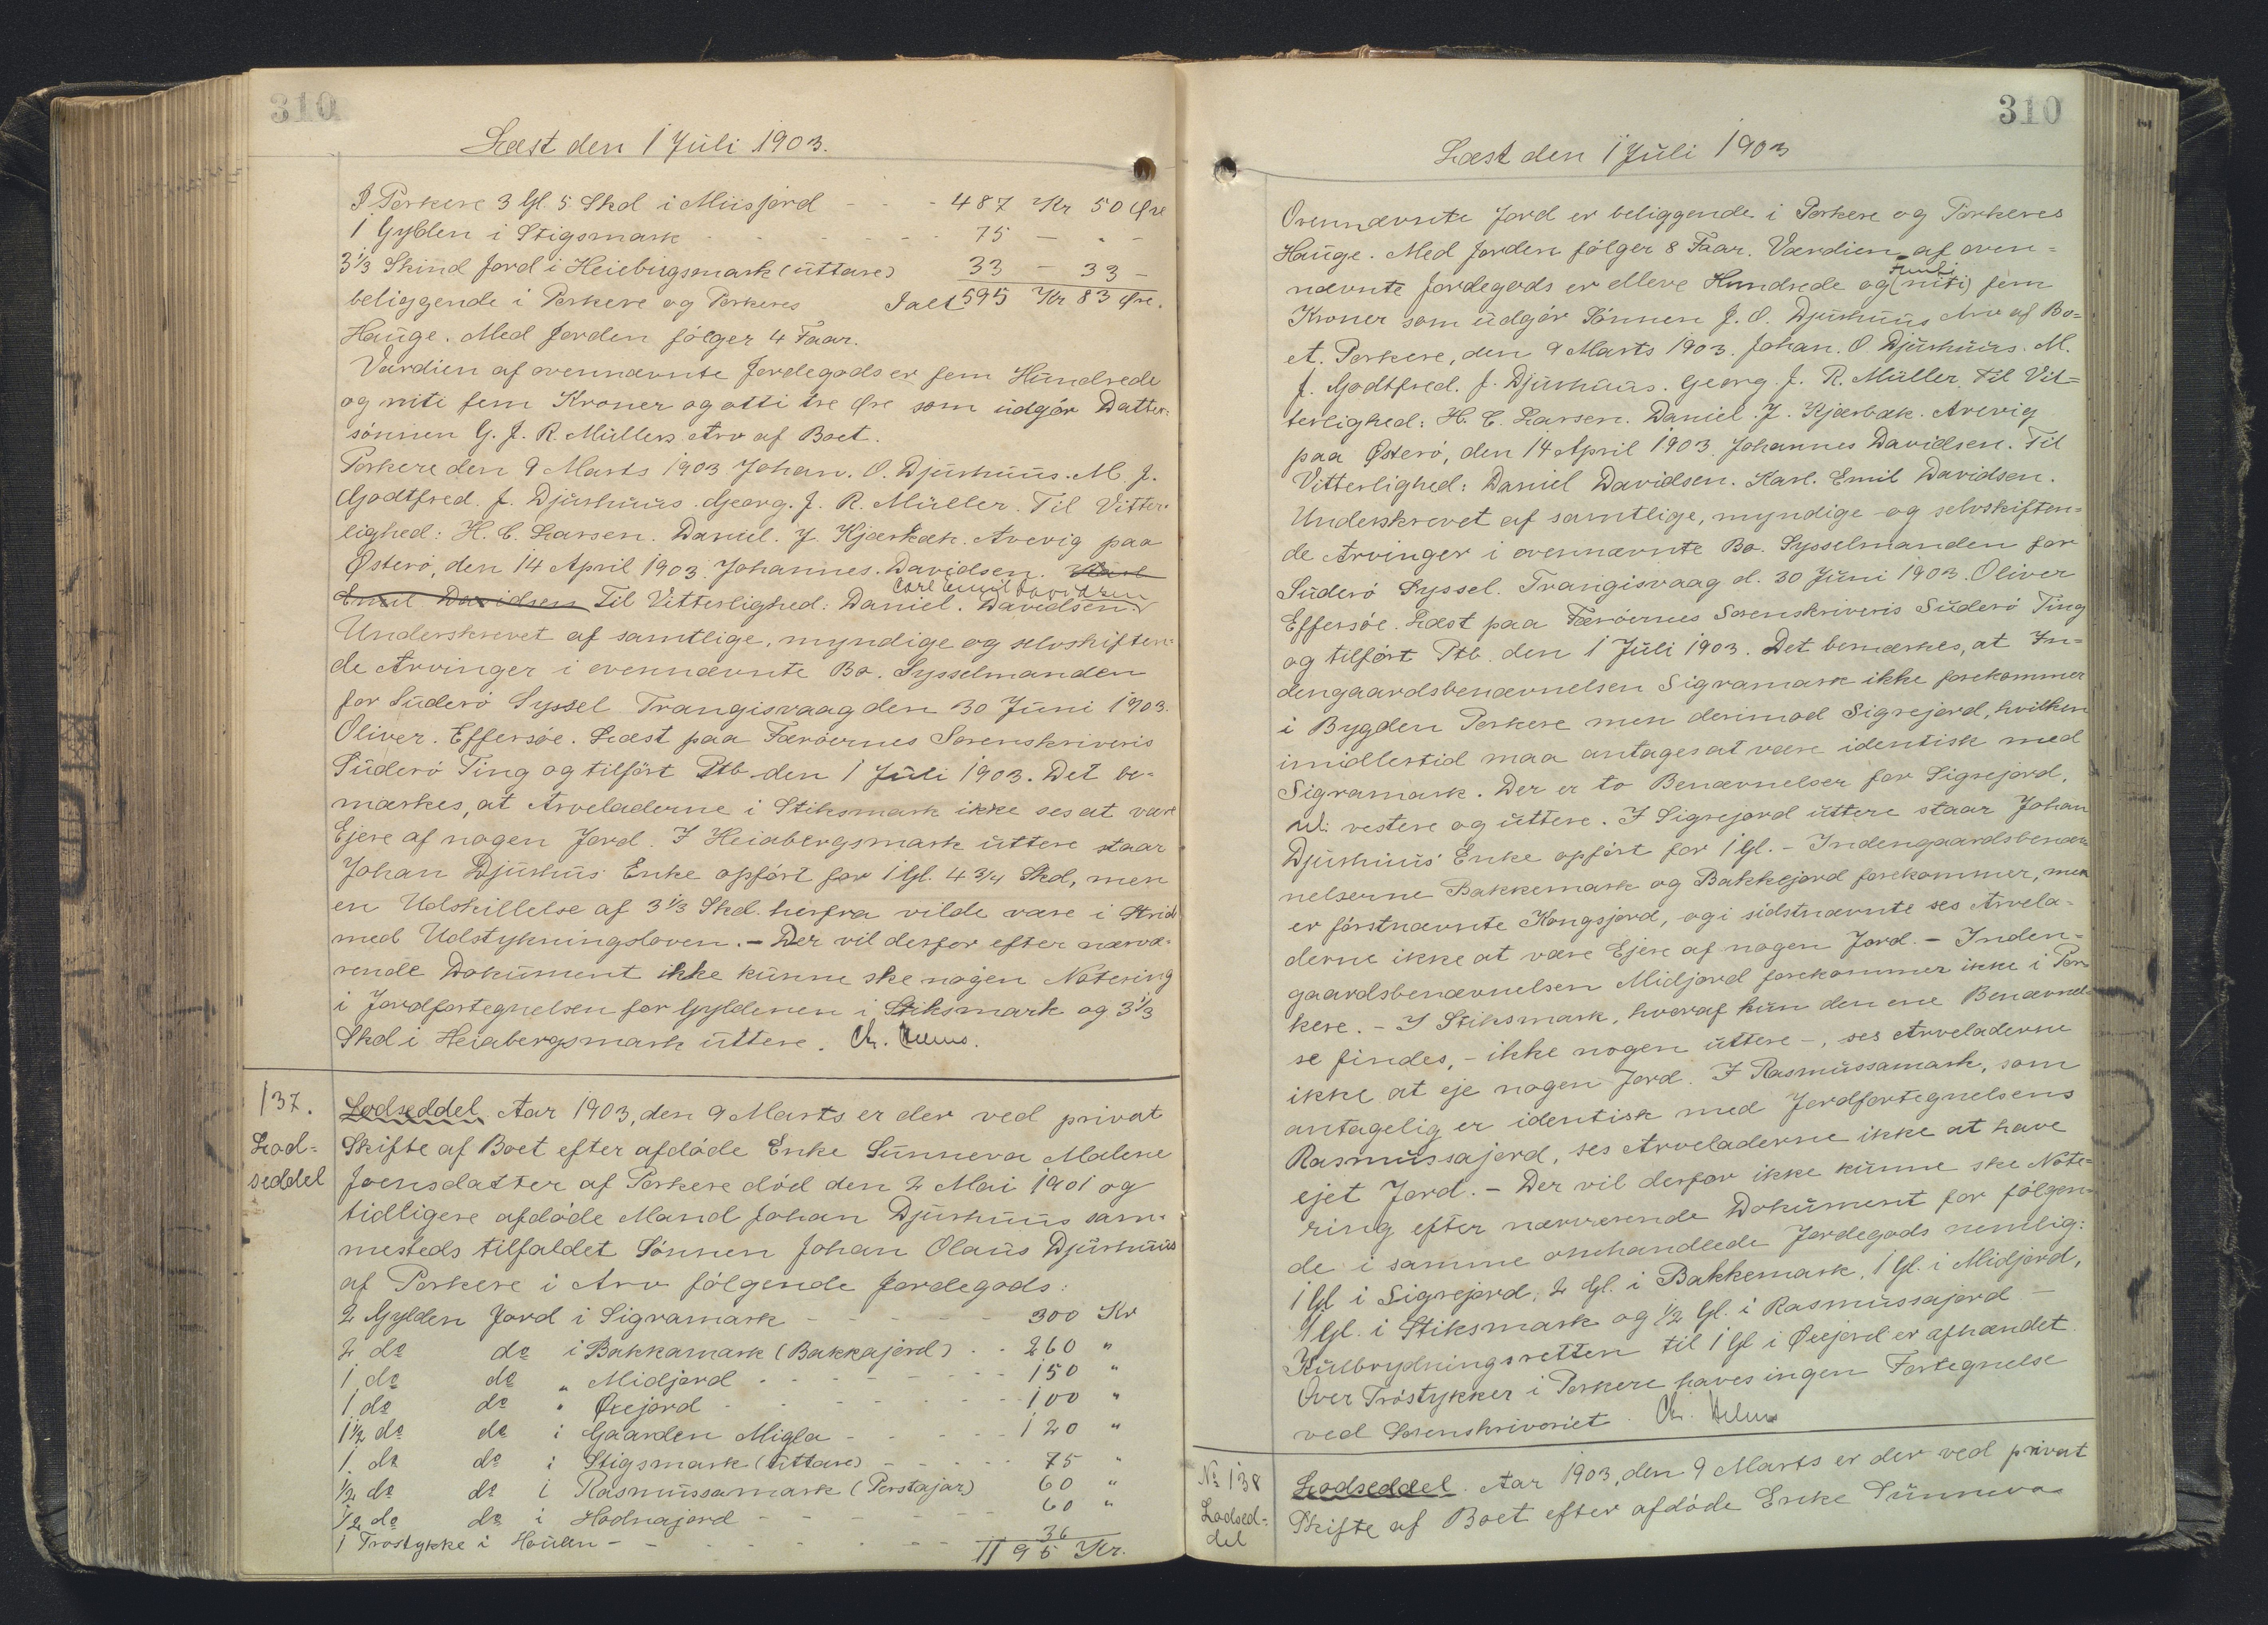 310
Læst den 1 Juli 1903.
I Porkere 3 Gl 5 Skd i Miisjord - - - 487 Kr 50 Øre
1 Gylden i Stigsmark - - - - - - 75 — " —
3 1/3 Skind Jord i Heiebirgsmark (üttare) 33 — 33 —
beliggende i Porkere og Porkeres Ialt 595 Kr 83 Øre.
Hauge. Med Jorden følger 4 Faar.
Værdien af ovennævnte Jordegods er fem Hundrede
og niti fem Kroner og otti tre Øre som udgør Datter-
sønnen G. J. R. Müllers Arv af Boet.
Porkere den 9 Marts 1903 Johan. O. Djurhuus. M. J.
Godtfred. J. Djurhuus. Georg. J. R. Müller. Til Vitter-
lighed: H. C. Larsen. Daniel. J. Kjærbæk. Averig paa
Østerø, den 14 April 1903. Johannes. Davidsen. Karl
Carl Emil Davidsen
Emil Davidsen Til Vitterlighed: Daniel. Davidsen.
Underskrevet af samtlige, myndige og selvskiften-
de Arvinger i ovennævnte Bo. Sysselmanden
for Suderø Syssel Trangisvaag den 30 Juni 1903.
Oliver. Effersøe. Læst paa Færøernes Sorenskriveris
Suderø Ting og tilført Ptb. den 1 Juli 1903. Det be-
mærkes, at Arveladerne i Stiksmark ikke ses at være
Ejere af nogen Jord. I Heiabergsmark üttere staar
Johan Djurhuus Enke opført for 1 Gl. 4 3/4 Skd, men
en Udskillelse af 3 1/3 Skd. herfra vilde være i Strid
med Udstykningsloven. — Der vil derfor efter nærvæ-
rende Dokument ikke kunne ske nogen Notering
i Jordfortegnelsen for Gyldenen i Stiksmark og 3 1/3
Skd i Heiabergsmark üttere. Ch. Helms.
137.
Lod-
seddel
Lodseddel Aar 1903, den 9 Marts er der ved privat
Skifte af Boet efter afdøde Enke Sunneva Malene
Joensdatter af Porkere død den 2 Mai 1901 og
tidligere afdøde Mand Johan Djurhuus sam-
mesteds tilfaldet Sønnen Johan Olaus Djurhuus
af Porkere i Arv følgende Jordegods:
2 Gylden Jord i Sigramark - - - - - 300 Kr
2 do do i Bakkamark (Bakkajord) . . 260 "
1 do do " Midjord - - - - - - 150 "
1 do do " Øxejord - - - - - - 100 "
1 1/2 do do i Gaarden Migla - - - - 120 "
1 do do i Stigsmark (üttare) - - - - 75 "
1/2 do do i Rasmussamark (Porstajar) 60 "
1/2 do do i Hodnajord - - - - - 60 "
1 Trøstykke i Houen - - - - - - 36
1195 Kr.
310
Læst den 1 Juli 1903
Ovennævnte Jord er beliggende i Porkere og Porkeres
Hauge. Med Jorden følger 8 Faar. Værdien af oven-
nævnte Jordegods er elleve Hundrede og (niti) fem
Kroner som udgør Sønnen J. O. Djurhuus Arv af Bo-
et. Porkere, den 9 Marts 1903. Johan. O Djurhuus. M.
J. Godtfred. J. Djurhuus. Georg. J. R. Müller. Til Vit-
terlighed: H. C. Larsen. Daniel. J. Kjærbæk. Averig
paa Østerø, den 14 April 1903. Johannes Davidsen. Til
Vitterlighed: Daniel Davidsen. Karl. Emil Davidsen.
Underskrevet af samtlige, myndige og selvskiften-
de Arvinger i ovennævnte Bo. Sysselmanden for
Suderø Syssel. Trangisvaag d. 30 Juni 1903. Oliver
Effersøe. Læst paa Færøernes Sorenskriveris Suderø Ting
og tilført Ptb. den 1 Juli 1903. Det bemærkes, at In-
dengaardsbenævnelsen Sigramark ikke forekommer
i Bygden Porkere men derimod Sigrejord, hvilken
imidlertid maa antages at være identisk med
Sigramark. Der er to Benævnelser for Sigrejord,
vestere og üttere. I Sigrejord üttere staar Johan
Djurhuus' Enke opført for 1 Gl. — Indengaardsbenæv-
nelserne Bakkemark og Bakkejord forekommer, men
er førstnævnte Kongsjord, og i sidstnævnte ses Arvela-
derne ikke at være Ejere af nogen Jord. — Inden-
gaardsbenævnelsen Midjord forekommer ikke i Por-
kere. — I Stiksmark, hvoraf kun den ene Benævnel-
se findes, — ikke nogen üttere —, ses Arveladerne
ikke at eje nogen Jord. I Rasmussamark, som
antagelig er identisk med Jordfortegnelsens
Rasmussajord, ses Arveladerne ikke at have
ejet Jord. — Der vil derfor ikke kunne ske Note-
ring efter nærværende Dokument for følgen-
de i samme omhandlede Jordegods nemlig:
1 Gl i Sigrejord, 2 Gl. i Bakkemark, 1 Gl. i Midjord,
1 Gl. i Stiksmark og 1/2 Gl. i Rasmussajord —
Kulbrydningsretten til 1 Gl i Øxejord er afhændet
Over Trøstykker i Porkere haves ingen Fortegnelse
ved Sorenskriveriet. Ch. Helms
No 138
Lodsed-
del
Lodseddel. Aar 1903, den 9 Marts er der ved privat
Skifte af Boet efter afdøde Enke Sunneva